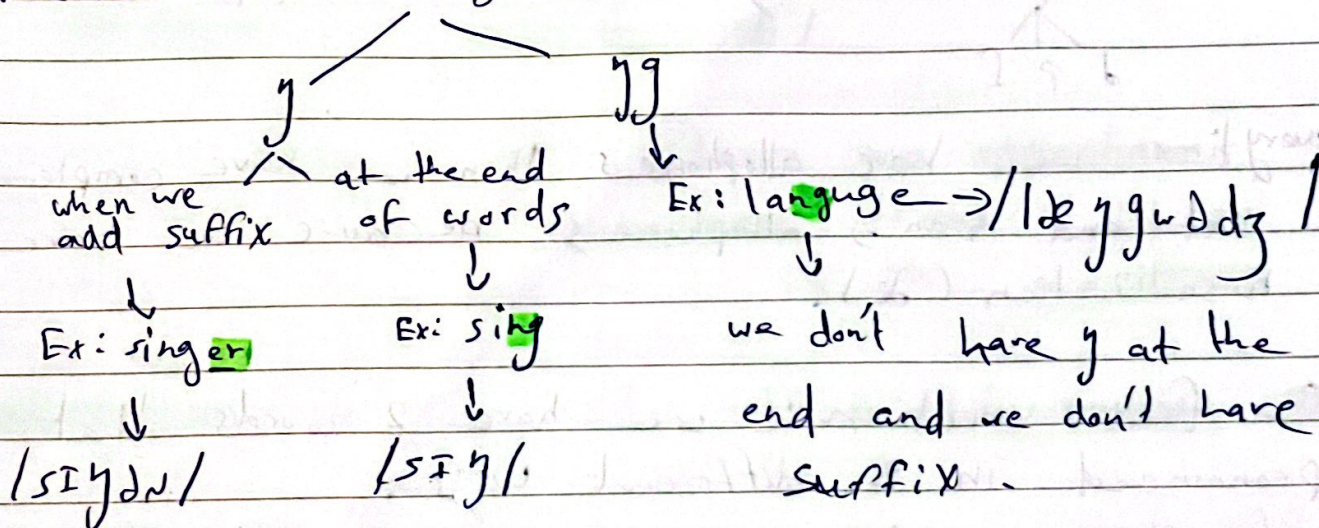 ŋ ŋg
when we add suffix
at the end of words
Ex: languge → /læŋgwədʒ/
Ex: singer
Ex: sing
we don't have ŋ at the
end and we don't have
suffix.
/sɪŋər/
/sɪŋ/.